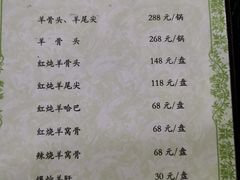 羊骨头、羊尾尖 288 元/锅
羊骨头 268 元/锅
红炖羊骨头 148 元/盘
红炖羊尾尖 118 元/盘
红炖羊哈巴 68 元/盘
红炖羊窝骨 68 元/盘
辣炖羊窝骨 68 元/盘
爆炒羊肝 30 元/盘